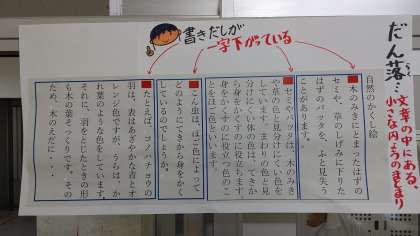 だん落…
文章の中にある、
小さな内ようのまとまり
書きだしが
一字下がっている
自然のかくし絵
木のみきにとまったはずの
セミや、草のしげみに下りた
はずのバッタを、ふと見失う
ことがあります。
セミやバッタは、木のみき
や草の色と見分けにくい色を
しています。まわりの色と見
分けにくい体の色は、てきか
ら身をかくすのに役立ちます。
身をかくすのに役立つ色のこ
とをほご色といいます。
こん虫は、ほご色によって
どのようにてきから身をかく
しているのでしょうか。
たとえば、コノハチョウの
羽は、表はあざやかな青とオ
レンジ色ですが、うらは、か
れ葉のような色をしています。
それに、羽をとじたときの形
も木の葉そっくりです。その
ため、木のえだに・・・